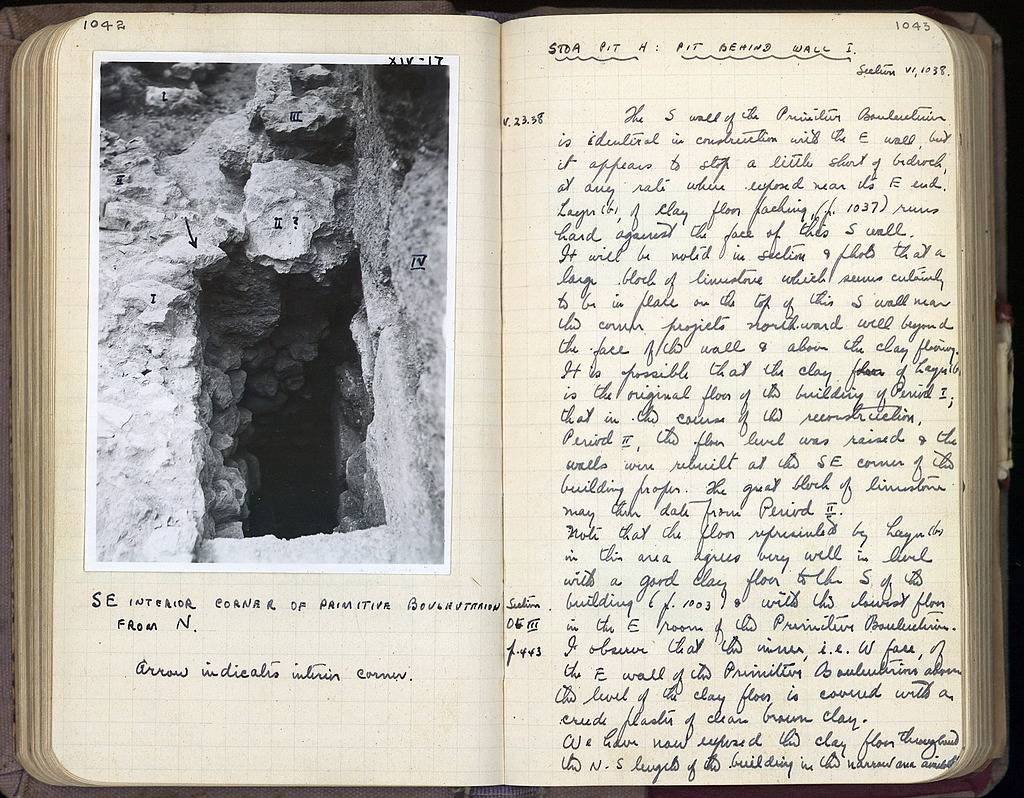 1042
XIV-17
I
III
II
II?
IV
I
SE INTERIOR CORNER OF PRIMITIVE BOULEUTERION
FROM N.
Arrow indicates interior corner.
1043
STOA PIT H: PIT BEHIND WALL I.
Section VI, 1038.
V.23.38
The S wall of the Primitive Bouleuterion
is identical in construction with the E wall, but
it appears to stop a little short of bedrock,
at any rate where exposed near its E end.
Layer (b), of clay floor packing, (p. 1037) runs
hard against the face of this S wall.
It will be noted in section & photo that a
large block of limestone which seems certainly
to be in place on the top of this S wall near
the corner projects northward well beyond
the face of the wall & above the clay flooring.
It is possible that the clay floor of Layer (b)
is the original floor of the building of Period I;
that in the course of the reconstruction,
Period II, the floor level was raised & the
walls were rebuilt at the SE corner of the
building proper. The great block of limestone
may then date from Period II.
Note that the floor represented by Layer (b)
in this area agrees very well in level
with a good clay floor to the S of the
Section
building (p. 1003) & with the lowest floor
OE III
in the E room of the Primitive Bouleuterion.
p. 443
I observe that the inner, i.e. W face, of
the E wall of the Primitive Bouleuterion above
the level of the clay floor is covered with a
crude plaster of clean brown clay.
We have now exposed the clay floor throughout
the N-S length of the building in the narrow area available